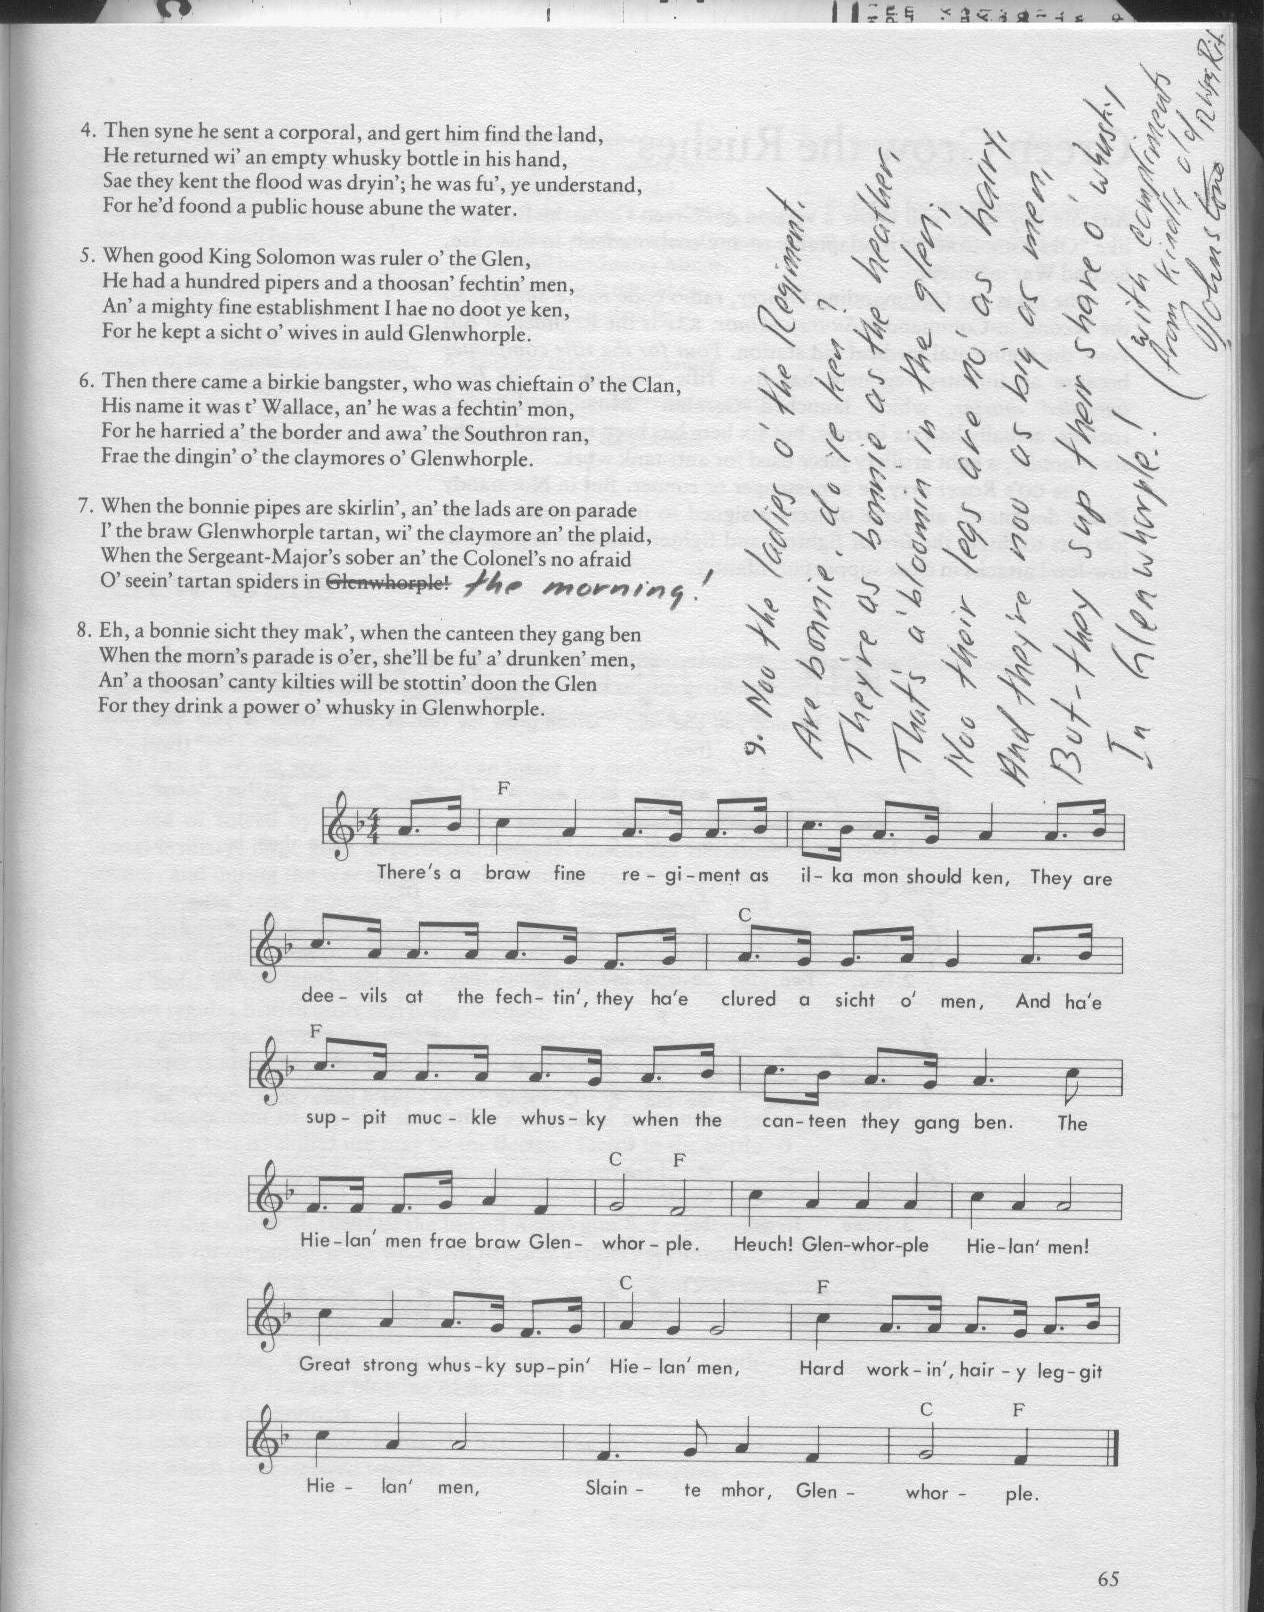 4. Then syne he sent a corporal, and gert him find the land,
He returned wi' an empty whusky bottle in his hand,
Sae they kent the flood was dryin'; he was fu', ye understand,
For he'd foond a public house abune the water.
5. When good King Solomon was ruler o' the Glen,
He had a hundred pipers and a thoosan' fechtin' men,
An' a mighty fine establishment I hae no doot ye ken,
For he kept a sicht o' wives in auld Glenwhorple.
6. Then there came a birkie bangster, who was chieftain o' the Clan,
His name it was t' Wallace, an' he was a fechtin' mon,
For he harried a' the border and awa' the Southron ran,
Frae the dingin' o' the claymores o' Glenwhorple.
7. When the bonnie pipes are skirlin', an' the lads are on parade
I' the braw Glenwhorple tartan, wi' the claymore an' the plaid,
When the Sergeant-Major's sober an' the Colonel's no afraid
O' seein' tartan spiders in Glenwhorple! the morning!
8. Eh, a bonnie sicht they mak', when the canteen they gang ben
When the morn's parade is o'er, she'll be fu' a' drunken' men,
An' a thoosan' canty kilties will be stottin' doon the Glen
For they drink a power o' whusky in Glenwhorple.
9. Noo the ladies o' the Regiment.
Are bonnie, do ye ken?
They're as bonnie as the heather,
That's a'bloomin in the glen;
Noo their legs are no' as hairy,
And they're nou as big as men,
But-they sup their share o' whusky
In Glenwhorple!
(with compliments
from kindly old
Johnstone
F
There's a braw fine re-gi-ment as il-ka mon should ken, They are
C
dee-vils at the fech-tin', they ha'e clured a sicht o' men, And ha'e
F
sup-pit muc-kle whus-ky when the can-teen they gang ben. The
C F
Hie-lan' men frae braw Glen-whor-ple. Heuch! Glen-whor-ple Hie-lan' men!
C F
Great strong whus-ky sup-pin' Hie-lan' men, Hard work-in', hair-y leg-git
C F
Hie-lan' men, Slain-te mhor, Glen-whor-ple.
65